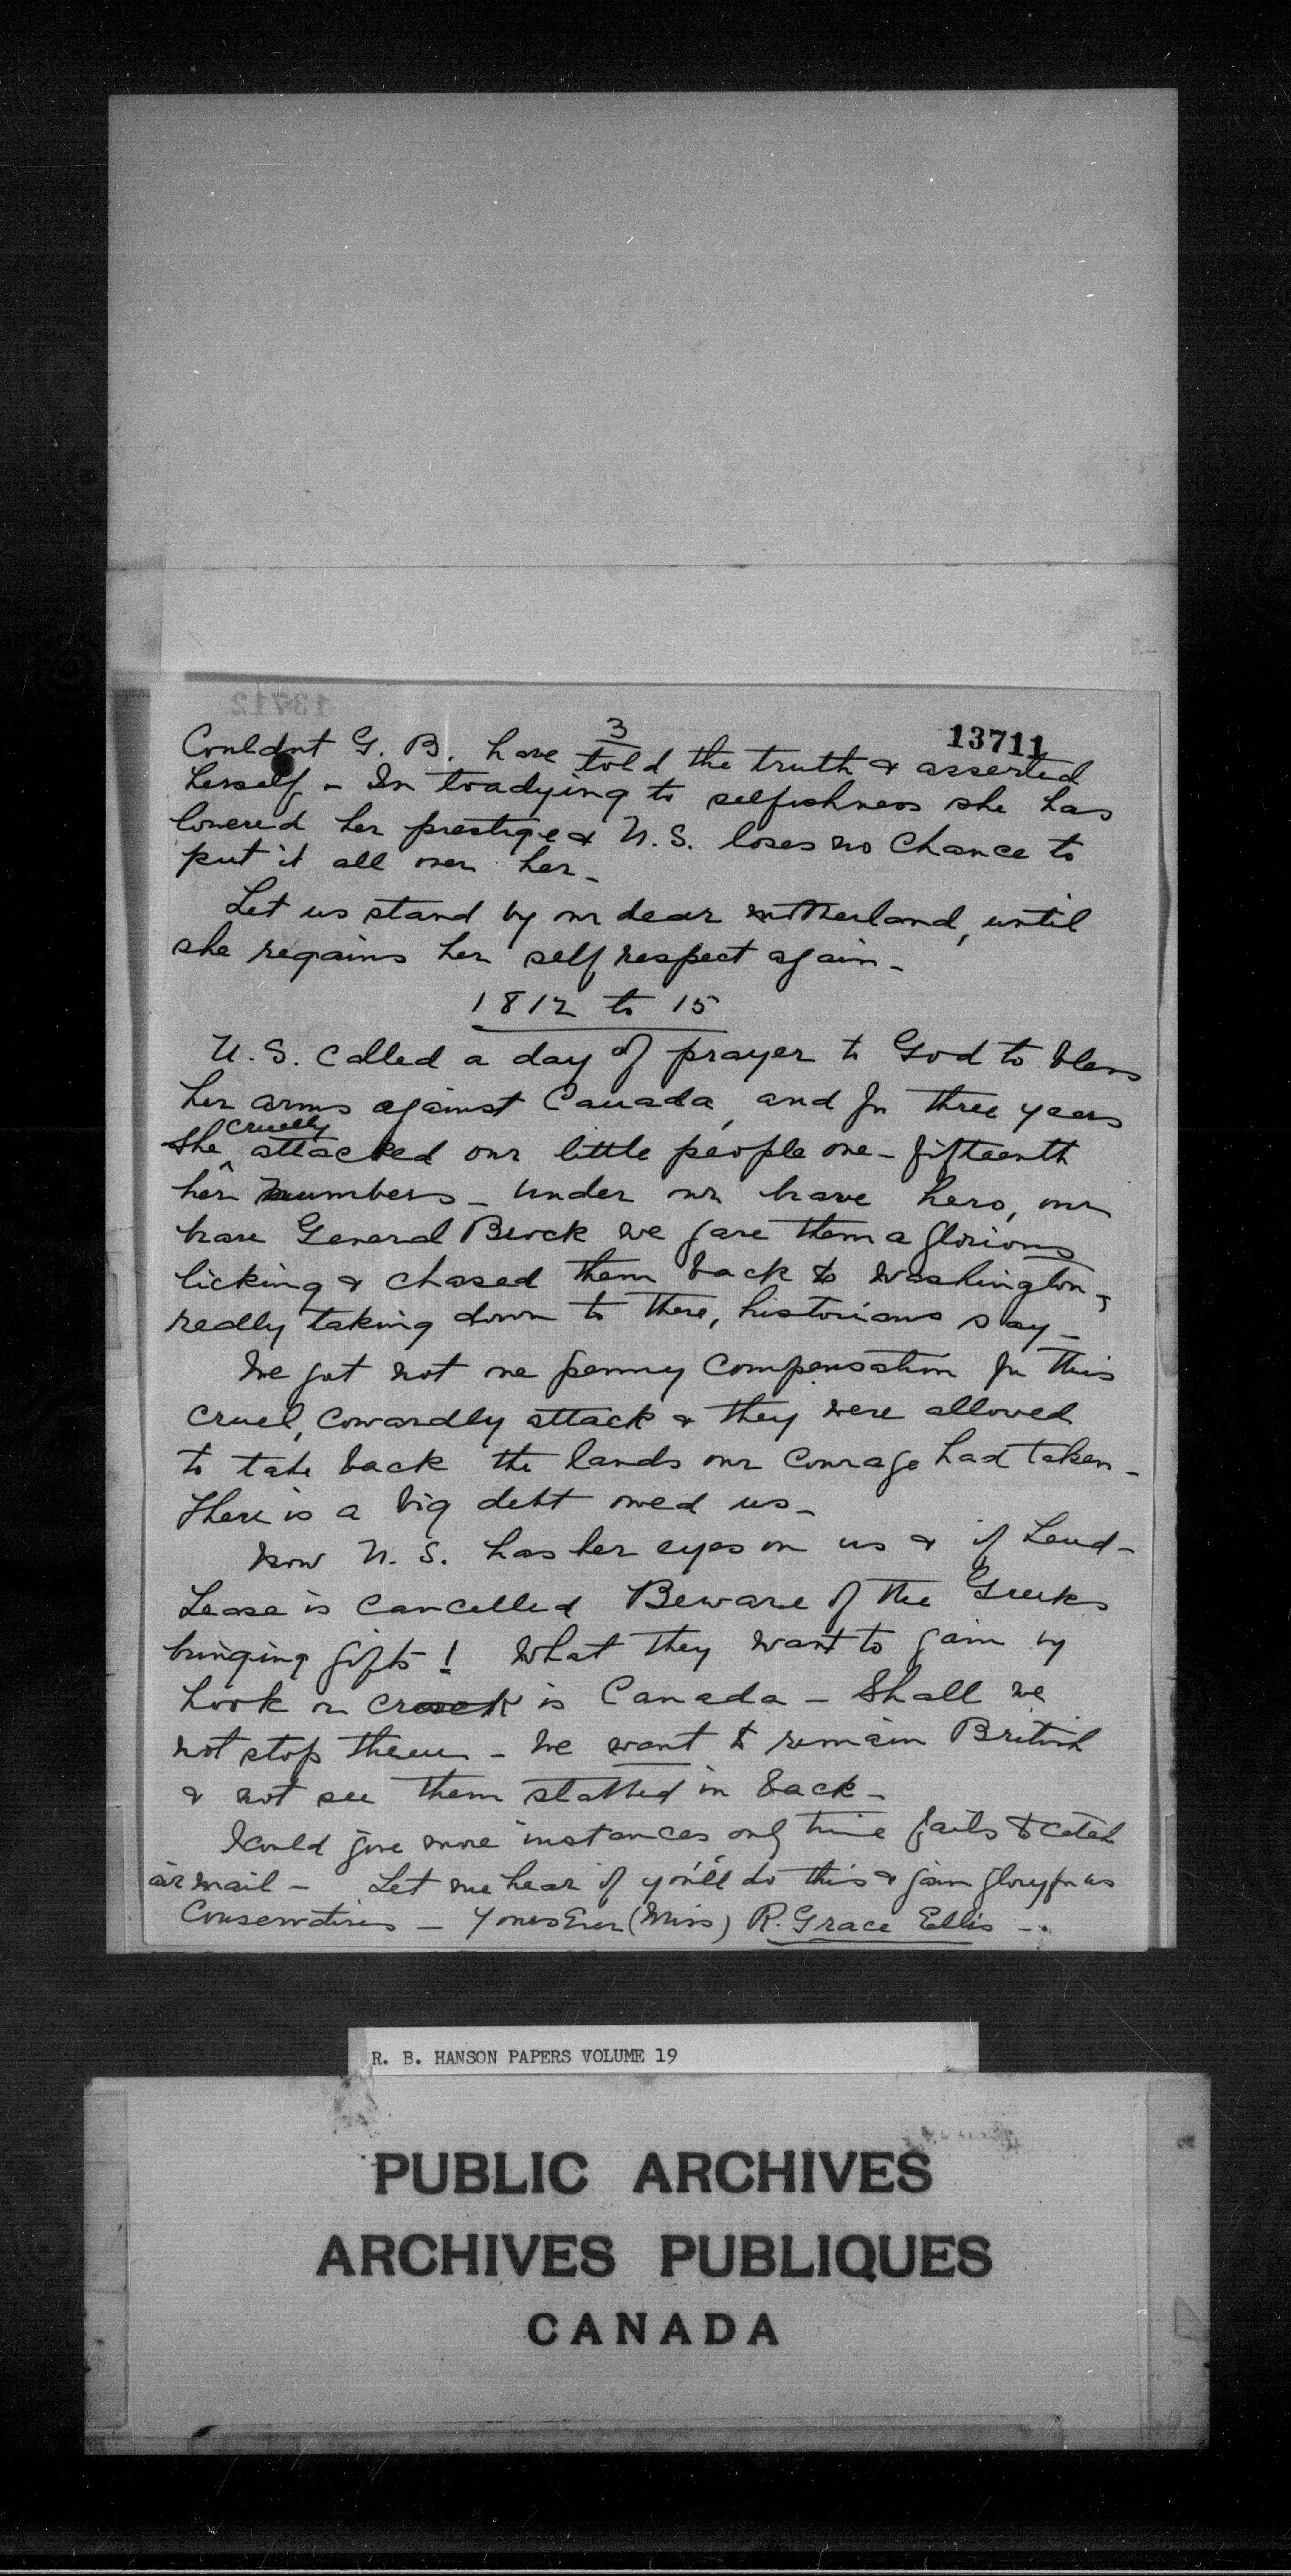 3
13711
Couldnt G. B. have told the truth & asserted
herself - In toadying to selfishness she has
lowered her prestige & U.S. loses no chance to
put it all over her -
Let us stand by our dear motherland, until
she regains her self respect again -
1812 to 15
U.S. called a day of prayer to God to bless
her arms against Canada, and for three years
she cruelly attacked our little people one-fifteenth
her numbers - Under our brave hero, our
brave General Brock we gave them a glorious
licking & chased them back to Washington,
really taking down to there, historians say -
We got not one penny compensation for this
cruel, cowardly attack & they were allowed
to take back the lands our courage had taken -
There is a big debt owed us -
Now U.S. has her eyes on us & if Lend-
Lease is cancelled Beware of the Greeks
bringing gifts! What they want to gain by
hook or crook is Canada - Shall we
not stop them - We want to remain British
& not see them stabbed in back -
I could give more instances only time fails to catch
air mail - Let me hear if you'll do this & gain glory for us
Conservatives - Yours Ever (Miss) R. Grace Ellis -
R. B. HANSON PAPERS VOLUME 19
PUBLIC ARCHIVES
ARCHIVES PUBLIQUES
CANADA